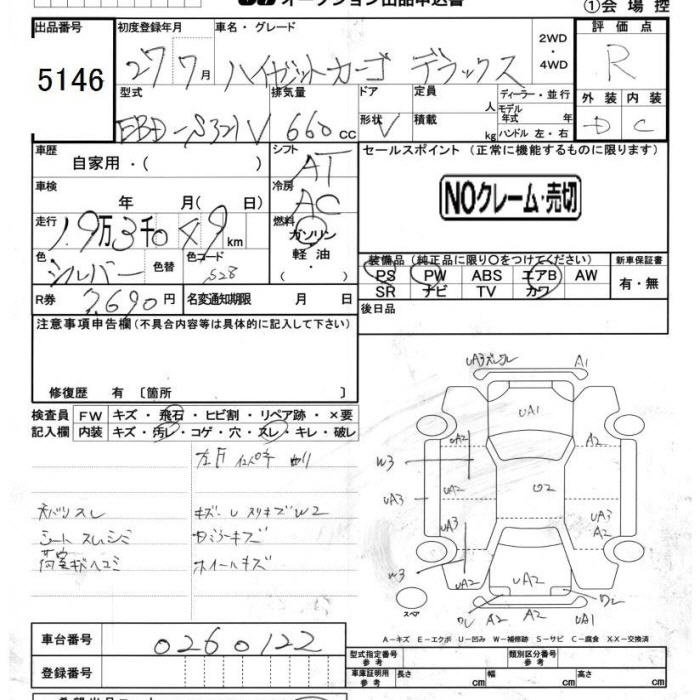 オークション出品申込書
①会場控
出品番号 5146
初度登録年月 27 7月
車名・グレード ハイゼットカーゴ デラックス
2WD・4WD
評価点 R
外装 D 内装 C
型式 EBD-S321V
排気量 660 cc
ドア形状 V
定員 人
積載 kg
ディーラー・並行
モデル年式 年
ハンドル 左・右
車歴 自家用・( )
シフト AT
セールスポイント (正常に機能するものに限ります)
NOクレーム・売切
車検 年 月( 日)
冷房 AC
走行 1.9万3千049km
燃料 ガソリン・軽油・
色 シルバー 色替 色コード S28
装備品 (純正品に限り○をつけてください)
PS PW ABS エアB AW
SR ナビ TV カワ
新車保証書 有・無
R券 7,690円
名変通知期限 月 日
後日品
注意事項申告欄(不具合内容等は具体的に記入して下さい)
修復歴 有〔箇所
検査員記入欄
FW キズ・飛石・ヒビ割・リペア跡・×要
内装 キズ・汚レ・コゲ・穴・スレ・キレ・破レ
天バリスレ
シートスレシミ
荷室キズヘコミ
ホイールキズ
UA3 A1
UA1
UA2 A2
W3
UA3 UA2 U2 UA3
UA3 UA3 A2
W3
UA2 UA2
スペア
A2 A2 UA1
A-キズ E-エクボ U-凹み W-補修跡 S-サビ C-腐食 XX-交換済
車台番号 0260122
登録番号
型式指定番号 参考
類別区分番号 参考
車庫証明用 参考 長さ cm 幅 cm 高さ cm